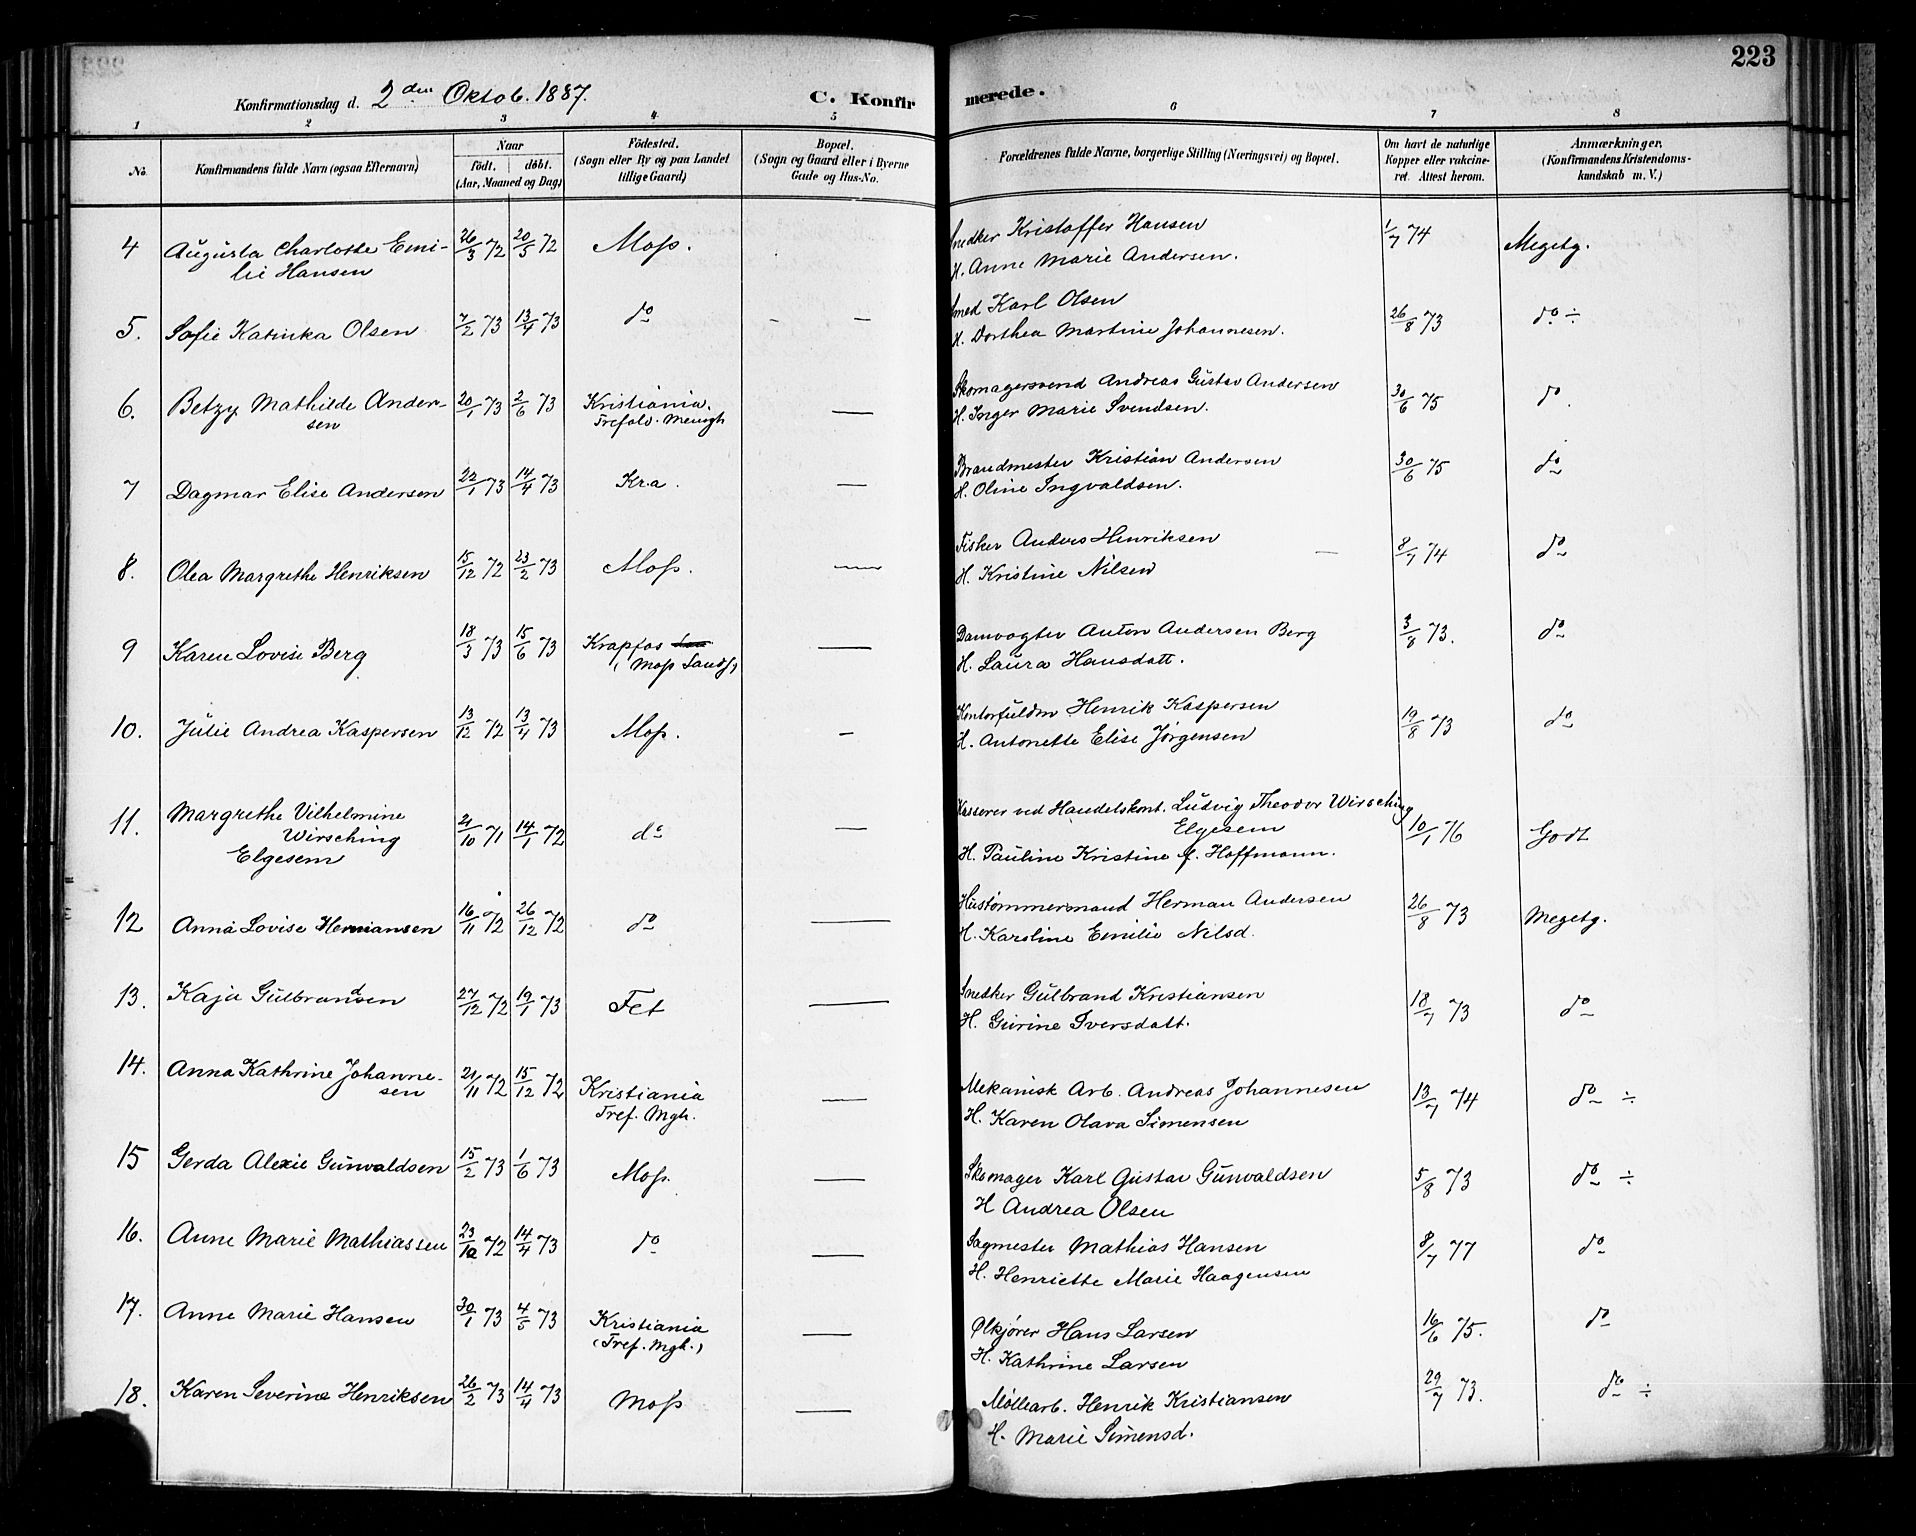 223
Konfirmationsdag d. 2den Oktob. 1887.
C. Konfirmerede.
1 2 3 4 5 6 7 8
No.
Konfirmandens fulde Navn (ogsaa Efternavn)
Naar
født. døbt.
(Aar, Maaned og Dag)
Fødested.
(Sogn eller By og paa Landet
tillige Gaard)
Bopæl.
(Sogn og Gaard eller i Byerne
Gade og Hus-No.
Forældrenes fulde Navne, borgerlige Stilling (Næringsvei) og Bopæl.
Om havt de naturlige
Kopper eller vakcine-
ret. Attest herom.
Anmærkninger.
(Konfirmandens Kristendoms-
kundskab m. V.)
4 Augusta Charlotte Emi- 26/3 72 20/5 72 Moss. Snedker Kristoffer Hansen 1/7 74 Megetg.
lie Hansen H. Anne Marie Andersen.
5. Sofie Katinka Olsen 7/2 73 13/4 73 do - — Smed Karl Olsen 26/8 73 do ÷
H. Dorthea Martine Johannesen.
6. Betzy Mathilde Ander- 20/1 73 2/6 73 Kristiania. — Skomagersvend Andreas Gustav Andersen 30/6 75 do
sen Trefold. Menigh H. Inger Marie Svendsen.
7 Dagmar Elise Andersen 22/1 73 14/4 73 Kr.a. — Brandmester Kristian Andersen 30/6 75 do
H. Oline Ingvaldsen.
8. Olea Margrethe Henriksen 15/12 72 23/2 73 Moss. — Fisker Anders Henriksen — 8/7 74 do
H. Kristine Nilsen
9 Karen Lovise Berg 18/3 73 15/6 73 Krapfos — Damvogter Anton Andersen Berg 3/8 73. do
(Moss Lands) H. Laura Hansdatt.
10. Julie Andrea Kaspersen 13/12 72 13/4 73 Moss. — Kontorfuldm Henrik Kaspersen 19/8 73 do
H. Antonette Elise Jørgensen
11. Margrethe Vilhelmine Kasserer ved Handelskont. Ludvig Theodor Wirsching
Wirsching 21/10 71 14/1 72 do — Elgesem 10/1 76 Godt
Elgesem H. Pauline Kristine f. Hoffmann.
12 Anna Lovise Hermansen 16/11 72 26/12 72 do — Hustømmermand Herman Andersen 26/8 73 Megetg.
H. Karoline Emilie Nilsd.
13. Kaja Gulbrandsen 27/12 72 19/1 73 Fet — Snedker Gulbrand Kristiansen 18/7 73 do
H. Gurine Iversdatt.
14. Anna Kathrine Johanne- 21/11 72 15/12 72 Kristiania — Mekanisk Arb. Andreas Johannesen 13/7 74 do ÷
sen Tref. Mgh. H. Karen Olava Simensen
15 Gerda Alexie Gunvaldsen 15/2 73 1/6 73 Moss. — Skomager Karl Gustav Gunvaldsen 5/8 73 do ÷
H Andrea Olsen
16. Anne Marie Mathiassen 23/10 72 14/4 73 do — Sagmester Mathias Hansen 8/7 77 do
H. Henriette Marie Haagensen
17. Anne Marie Hansen 30/1 73 4/5 73 Kristiania — Ølkjører Hans Larsen 16/6 75. do
(Tref. Mgh.) H. Kathrine Larsen
18. Karen Severine Henriksen 26/2 73 14/4 73 Moss — Møllearb. Henrik Kristiansen 29/7 73. do ÷
H. Marie Simensd.